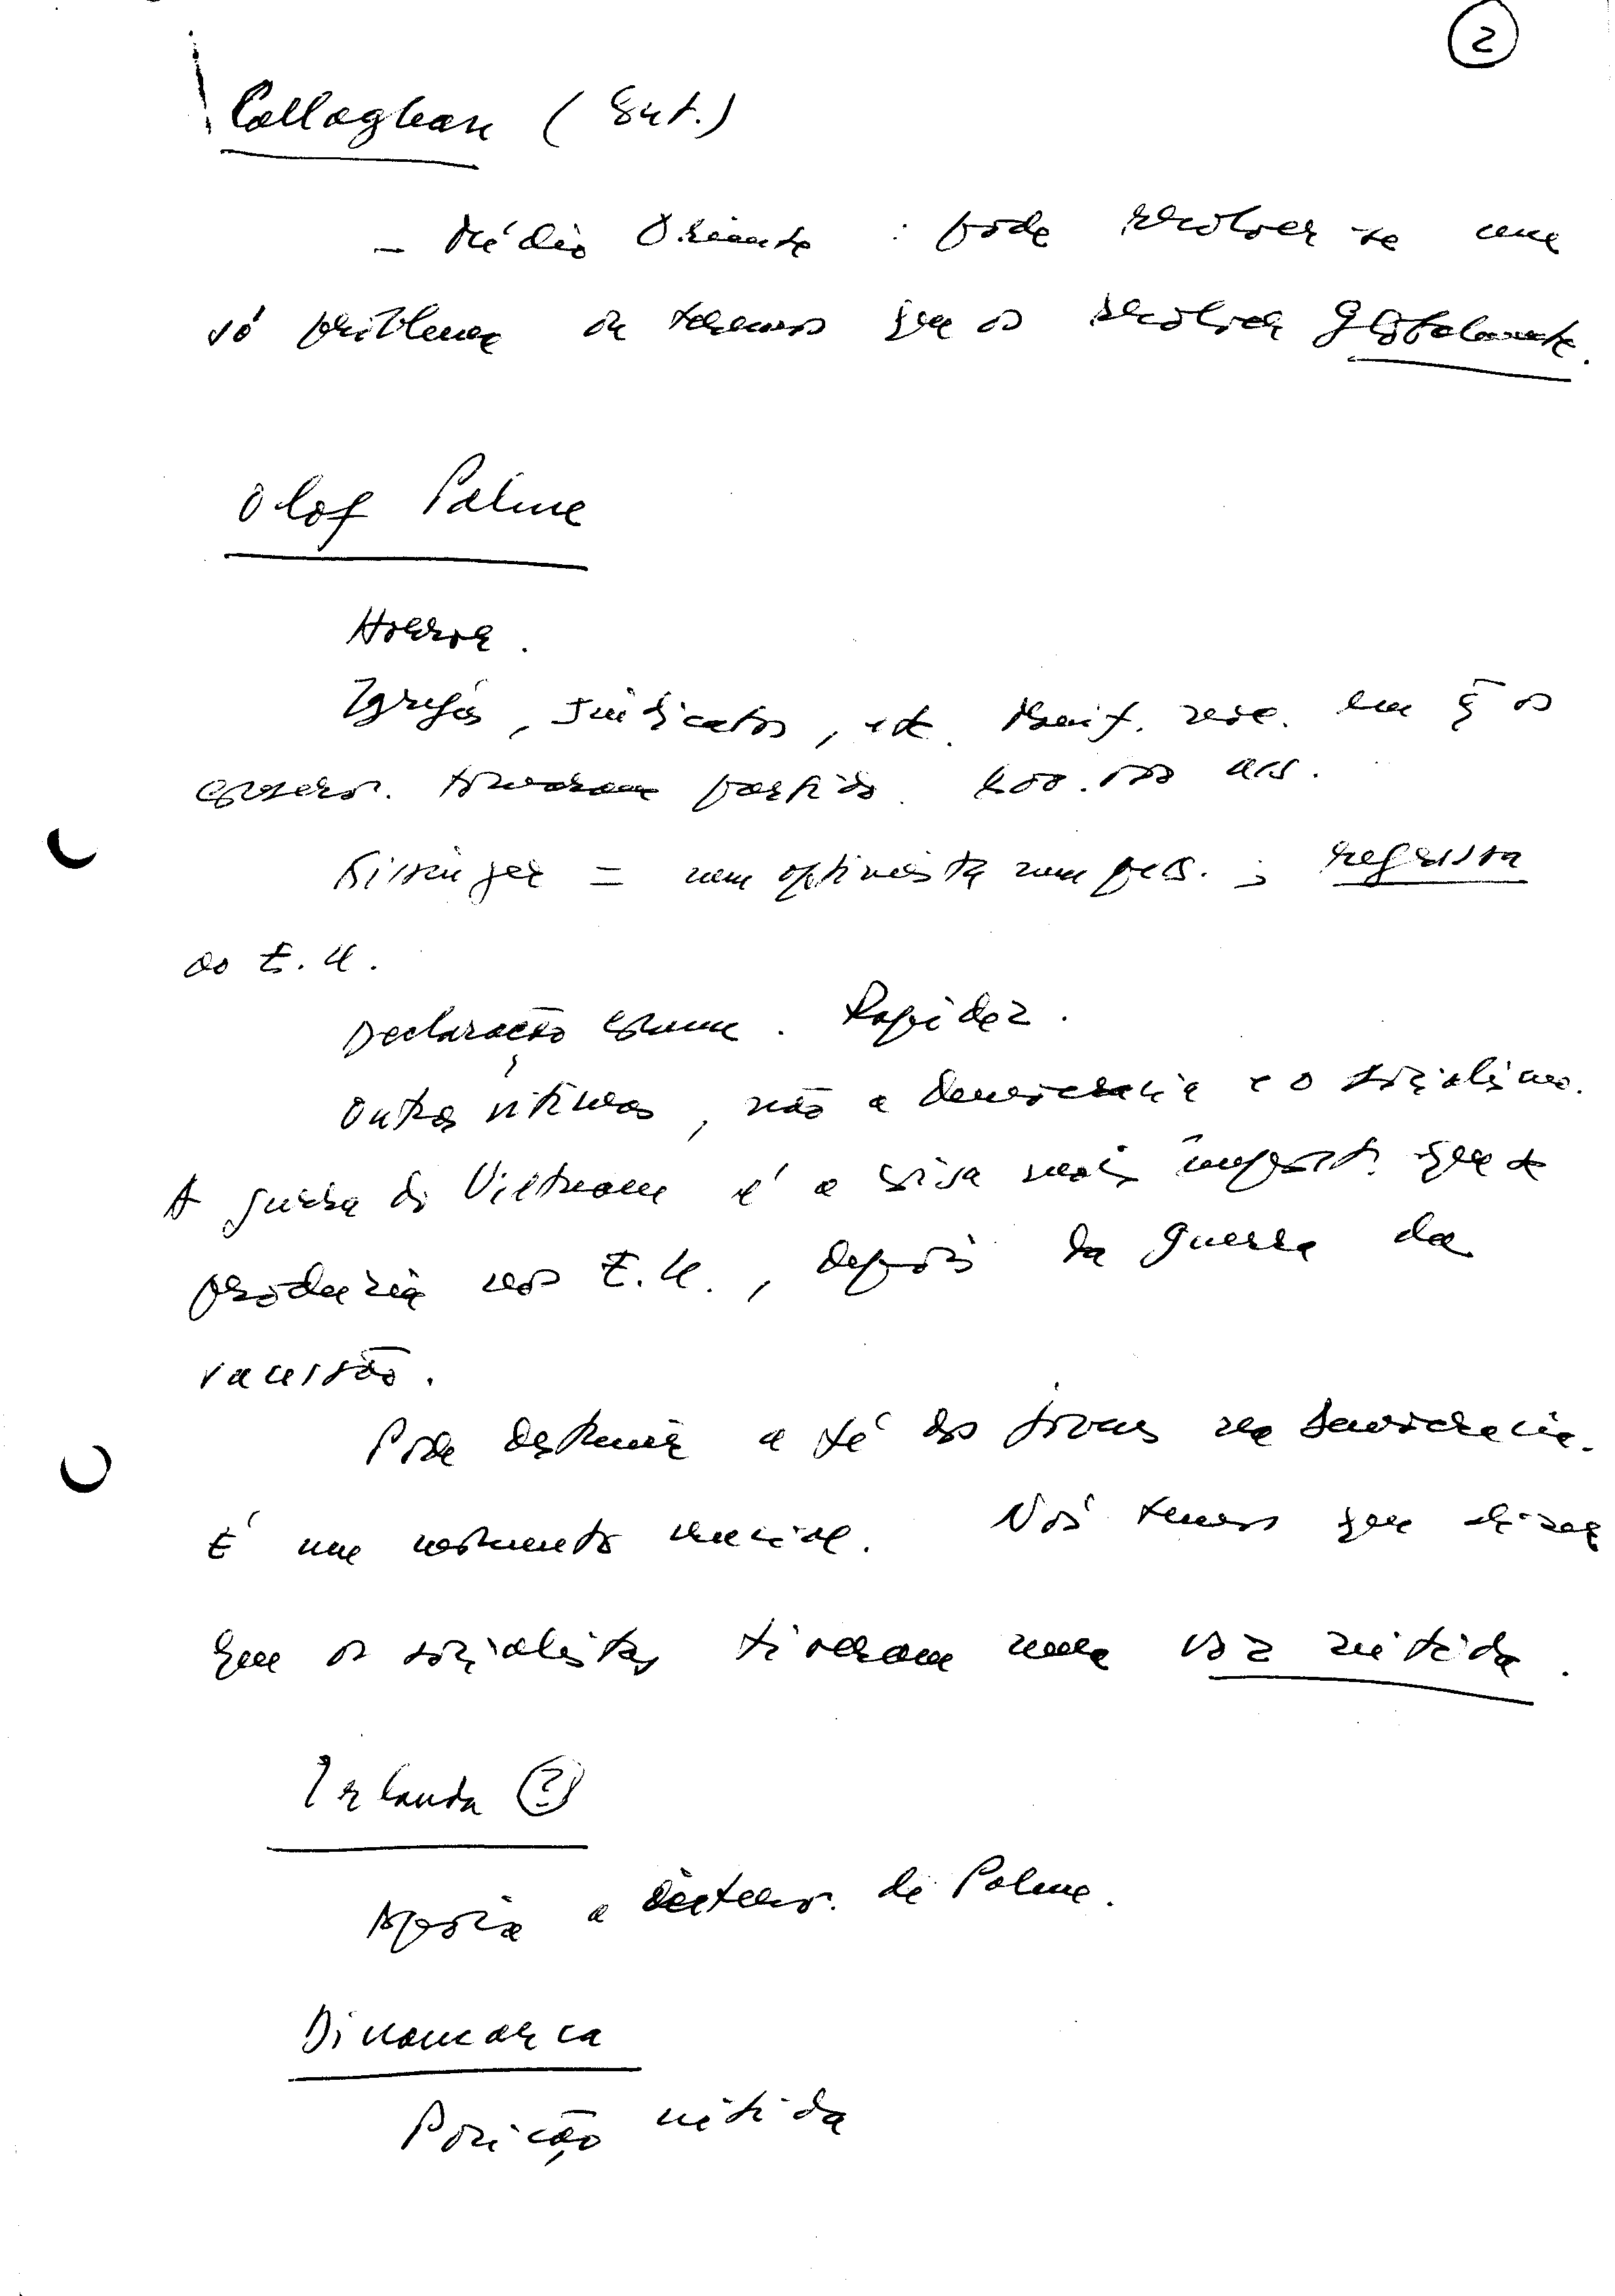 2
Callaghan (Int.)
- Médio Oriente : pode resolver-se um
só problema ou teremos que os resolver globalmente.
Olof Palme
Horror.
Igrejas, Sindicatos, etc. Manif. nac. em q̄ os
conserv. tomaram partido. 400.000 ass.
Kissinger = nem optimista nem pess. ; regressa
ao E.U.
Declaração comum. Rapidez.
Outras vítimas, não a democracia e o socialismo.
A guerra do Vietname é a coisa mais import. que se
produziu nos E.U., depois da guerra da
sucessão.
Pode destruir a fé dos jovens na democracia.
É um momento crucial. Nós temos que dizer
que os socialistas tiveram uma voz nítida.
Irlanda (?)
Apoia a de Palme.
Dinamarca
Posição nítida